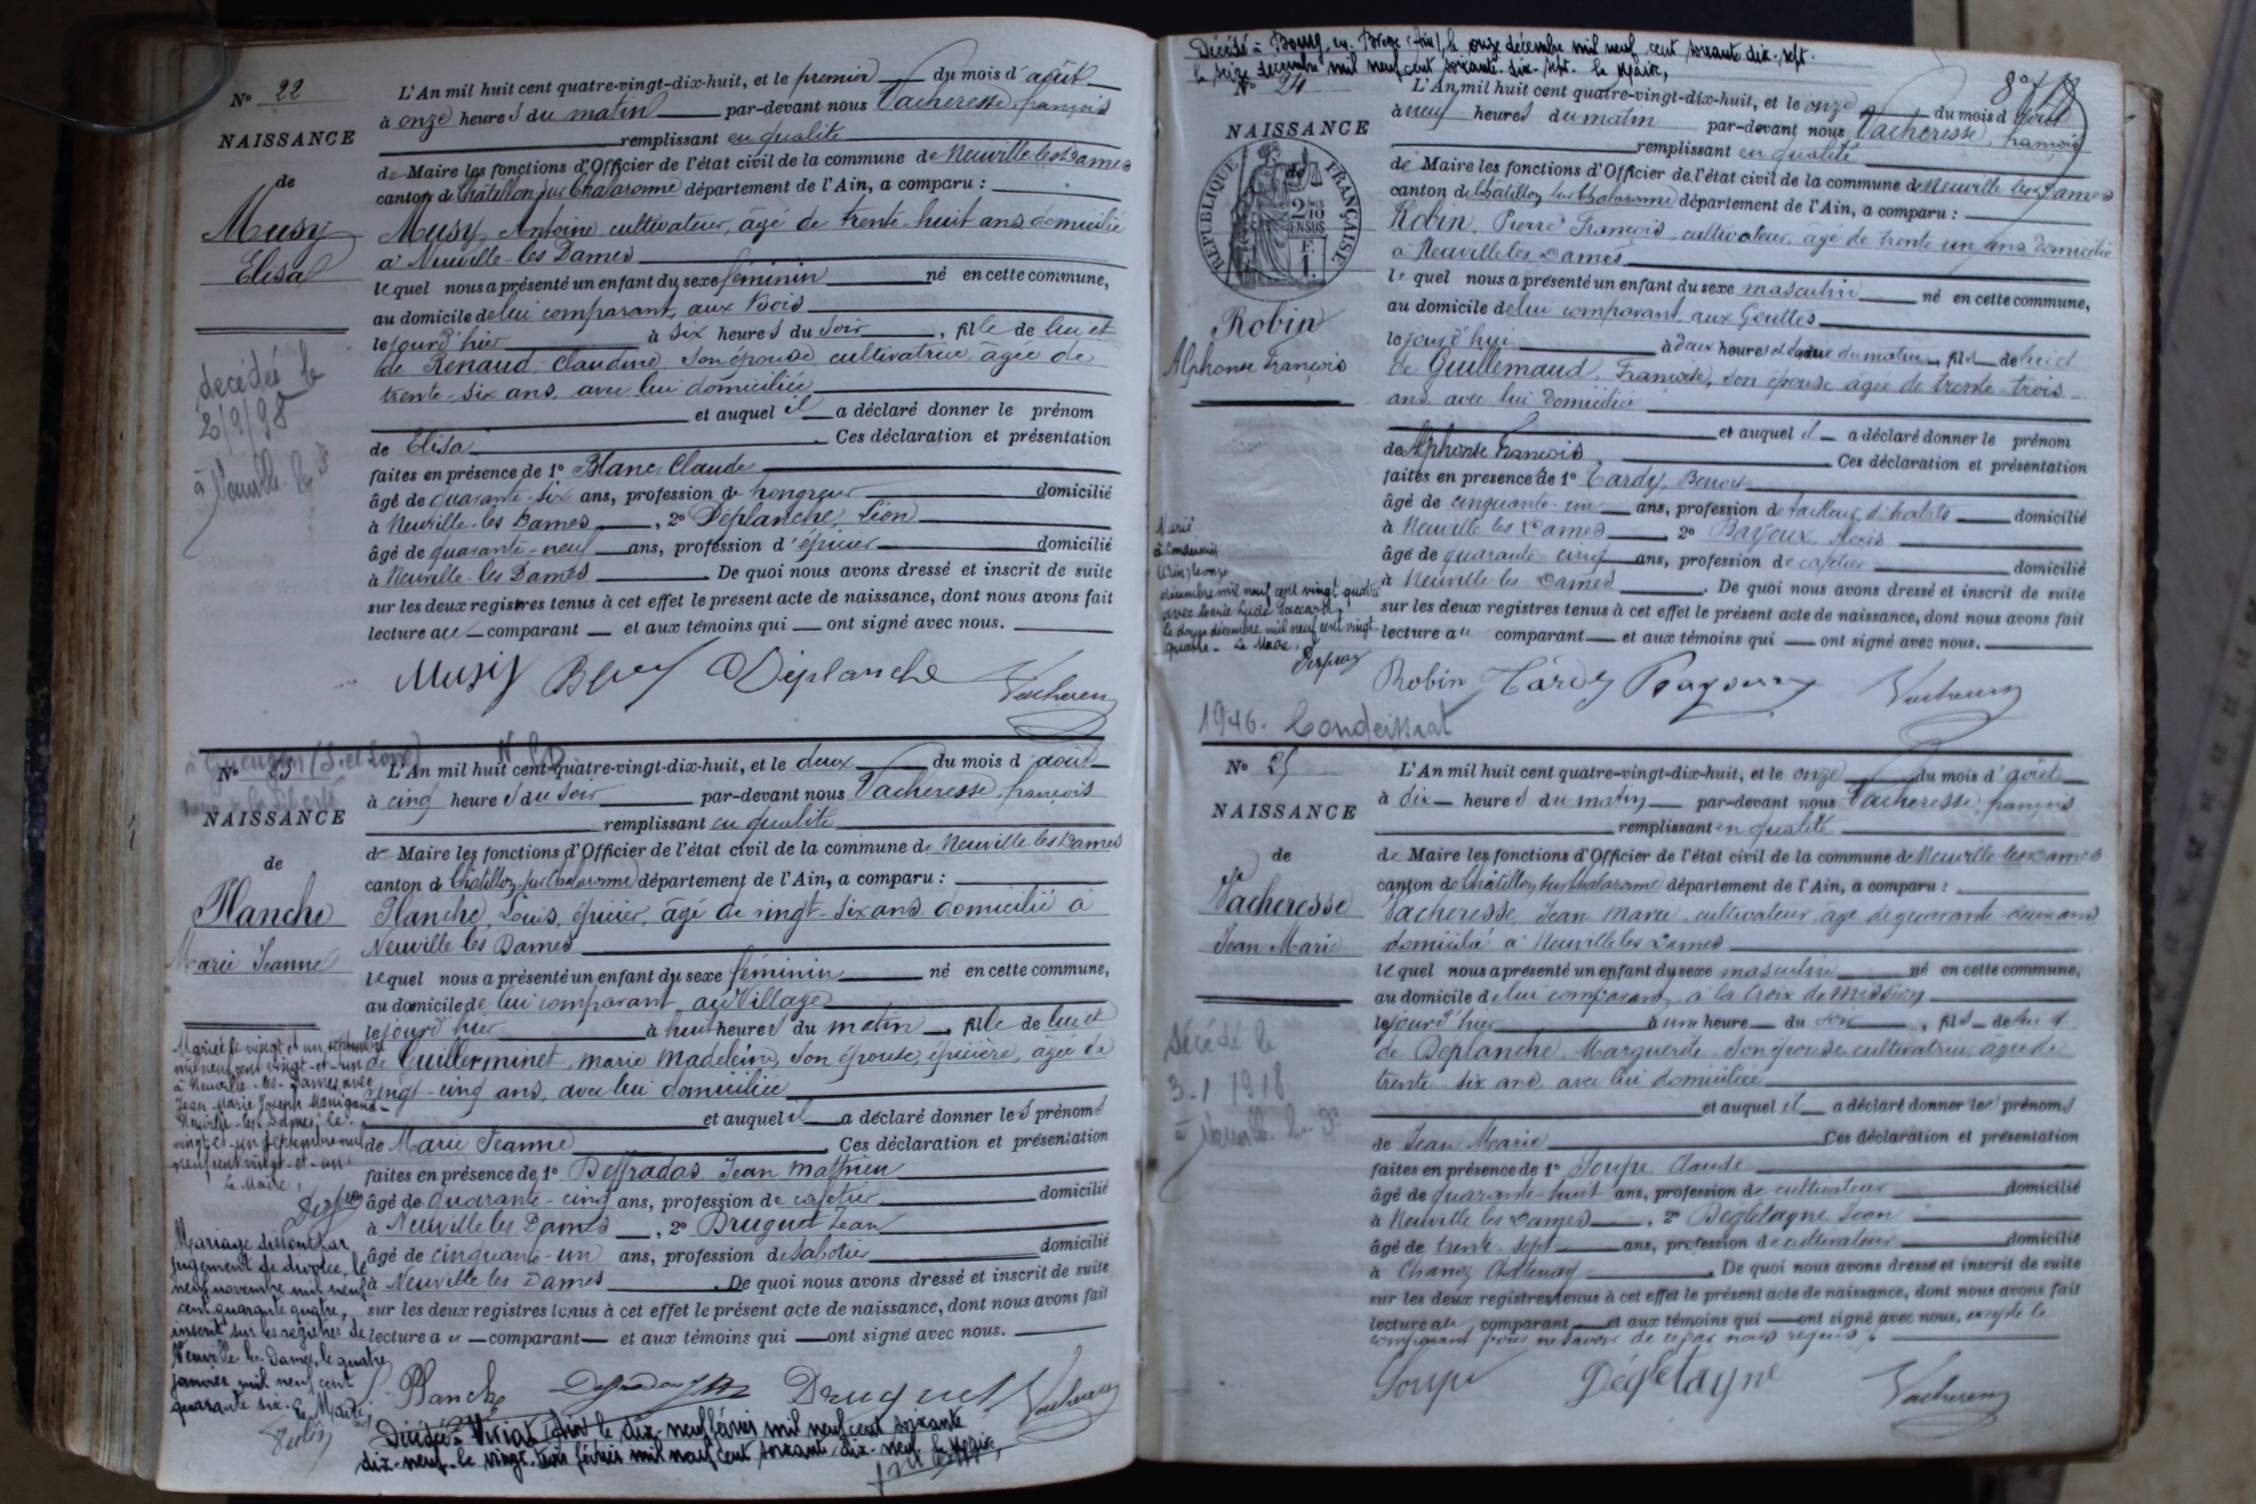 N° 22
NAISSANCE
de
Musy
Elisa
décédée le
2/9/98
à Neuville-les-D
L'An mil huit cent quatre-vingt-dix-huit, et le premier du mois d'août
à onze heures du matin par-devant nous Vacheresse, françois
remplissant en qualité
de Maire les fonctions d'Officier de l'état civil de la commune de Neuville les Dames
canton de Châtillon sur Chalaronne département de l'Ain, a comparu :
Musy, Antoine cultivateur, âgé de trente-huit ans domicilié
à Neuville-les Dames
lequel nous a présenté un enfant du sexe féminin né en cette commune,
au domicile de lui comparant, aux Bois
le jour d'hier à six heures du soir, fille de lui et
de Renaud, Claudine, son épouse cultivatrice, âgée de
trente-six ans, avec lui domiciliée
et auquel il a déclaré donner le prénom
de Elisa Ces déclaration et présentation
faites en présence de 1° Blanc, Claude
âgé de quarante-six ans, profession de hongreur domicilié
à Neuville-les Dames, 2° Déplanche, Léon
âgé de quarante-neuf ans, profession d'épicier domicilié
à Neuville-les Dames. De quoi nous avons dressé et inscrit de suite
sur les deux registres tenus à cet effet le présent acte de naissance, dont nous avons fait
lecture au comparant et aux témoins qui ont signé avec nous.
Musy Blanc Déplanche
Vacheresse
à Gueugnon (S. et Loire)
N° 23
NAISSANCE
de
Planche
Marie Jeanne
Mariée le vingt et un septembre
mil neuf cent vingt-et-un
à Neuville-les-Dames, avec
Jean Marie Joseph Manigand
Neuville-les-Dames, le
vingt-et-un septembre mil
neuf cent vingt-et-un
Le Maire,
Mariage dissout par
jugement de divorce, le
neuf novembre mil neuf
cent quarante quatre,
inscrit sur les registres de
Neuville les Dames, le quatre
janvier mil neuf cent
quarante six. Le Maire,
L'An mil huit cent quatre-vingt-dix-huit, et le deux du mois d'août
à cinq heures du soir par-devant nous Vacheresse, françois
remplissant en qualité
de Maire les fonctions d'Officier de l'état civil de la commune de Neuville les Dames
canton de Châtillon sur Chalaronne département de l'Ain, a comparu :
Planche, Louis, épicier, âgé de vingt-six ans domicilié à
Neuville les Dames
lequel nous a présenté un enfant du sexe féminin né en cette commune,
au domicile de lui comparant, au Village
le jour d'hier à huit heures du matin, fille de lui et
de Guillerminet, marie Madeleine, son épouse, épicière, âgée de
vingt-cinq ans, avec lui domiciliée
et auquel il a déclaré donner les prénoms
de Marie Jeanne Ces déclaration et présentation
faites en présence de 1° Deffradas, Jean mathieu
âgé de quarante-cinq ans, profession de cafetier domicilié
à Neuville les Dames, 2° Druguet Jean
âgé de cinquante-un ans, profession de sabotier domicilié
à Neuville les Dames. De quoi nous avons dressé et inscrit de suite
sur les deux registres tenus à cet effet le présent acte de naissance, dont nous avons fait
lecture au comparant et aux témoins qui ont signé avec nous.
Planche Druguet Vacheresse
Décédée à Viriat (Ain) le dix-neuf février mil neuf cent soixante
dix-neuf. le vingt-trois février mil neuf cent soixante-dix-neuf. Le Maire,
Décédé à Bourg-en-Bresse (Ain), le onze décembre mil neuf cent soixante dix-sept.
le seize décembre mil neuf cent soixante-dix-sept. le Maire,
N° 24
NAISSANCE
de
RÉPUBLIQUE FRANÇAISE
2/10 EN SUS
F.
1.
Robin
Alphonse François
Marié
à Condeissiat
(Ain) le onze
décembre mil neuf cent vingt quatre
avec Marie Lucie Jaccard.
le douze décembre mil neuf cent vingt-
quatre. Le Maire,
1946. Condeissiat
L'An mil huit cent quatre-vingt-dix-huit, et le onze du mois d'août
à neuf heures du matin par-devant nous Vacheresse, françois
remplissant en qualité
de Maire les fonctions d'Officier de l'état civil de la commune de Neuville les Dames
canton de Châtillon sur Chalaronne département de l'Ain, a comparu :
Robin, Pierre François, cultivateur, âgé de trente un ans domicilié
à Neuville les Dames
lequel nous a présenté un enfant du sexe masculin né en cette commune,
au domicile de lui comparant, aux Gouttes
le jour d'hui à deux heures du matin, fils de lui et
de Guillemaud, Françoise, son épouse âgée de trente-trois
ans, avec lui domiciliée
et auquel il a déclaré donner le prénom
de Alphonse François. Ces déclaration et présentation
faites en présence de 1° Tardy, Benoit
âgé de cinquante-un ans, profession de tailleur d'habits domicilié
à Neuville les Dames 2° Bayoux Alexis
âgé de quarante cinq ans, profession de cafetier domicilié
à Neuville les Dames. De quoi nous avons dressé et inscrit de suite
sur les deux registres tenus à cet effet le présent acte de naissance, dont nous avons fait
lecture au comparant et aux témoins qui ont signé avec nous.
Robin Tardy Vacheresse
N° 25
NAISSANCE
de
Vacheresse
Jean Marie
Décédé le
3-1 1918
à Neuville-les-D
L'An mil huit cent quatre-vingt-dix-huit, et le onze du mois d'août
à dix heures du matin par-devant nous Vacheresse, françois
remplissant en qualité
de Maire les fonctions d'Officier de l'état civil de la commune de Neuville les Dames
canton de Châtillon sur Chalaronne département de l'Ain, a comparu :
Vacheresse, Jean Marie, cultivateur, âgé de quarante-deux ans,
domicilié à Neuville les Dames
lequel nous a présenté un enfant du sexe masculin né en cette commune,
au domicile de lui comparant, à la Croix de Mission
le jour d'hier à une heure du soir, fils de lui et
de Déplanche, Marguerite, son épouse cultivatrice âgée de
trente-six ans, avec lui domiciliée
et auquel il a déclaré donner les prénoms
de Jean Marie Ces déclaration et présentation
faites en présence de 1° Soupe, Claude
âgé de quarante-huit ans, profession de cultivateur domicilié
à Neuville les Dames, 2° Dégletagne, Jean
âgé de trente-sept ans, profession de cultivateur domicilié
à Chanoz Châtenay. De quoi nous avons dressé et inscrit de suite
sur les deux registres tenus à cet effet le présent acte de naissance, dont nous avons fait
lecture au comparant et aux témoins qui ont signé avec nous, excepté le
comparant pour ne savoir de ce par nous requis.
Soupe Dégletagne Vacheresse